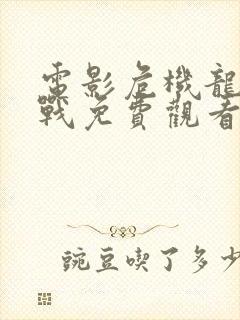 電影危機龍
戰免費觀看
豌豆喫了多少